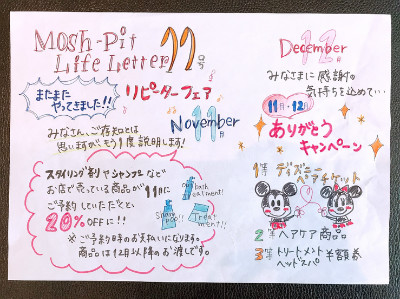 Mosh-Pit
Life Letter 11号
またまた
やってきました!!
リピーターフェア
November 11月
みなさん、ご存知とは
思いますが、もう1度説明します!
スタイリング剤やシャンプーなど
お店で売っている商品が11月に
ご予約していただくと、
20%OFFに!!
※ご予約時のお支払いになります。
商品は12月以降のお渡しです。
treatment!!
Treatment!!
December 12月
みなさまに感謝の
気持ちを込めて…
11月・12月
ありがとう
キャンペーン
1等 ディズニー
ペアチケット
2等 ヘアケア商品
3等 トリートメント 半額券
ヘッドスパ